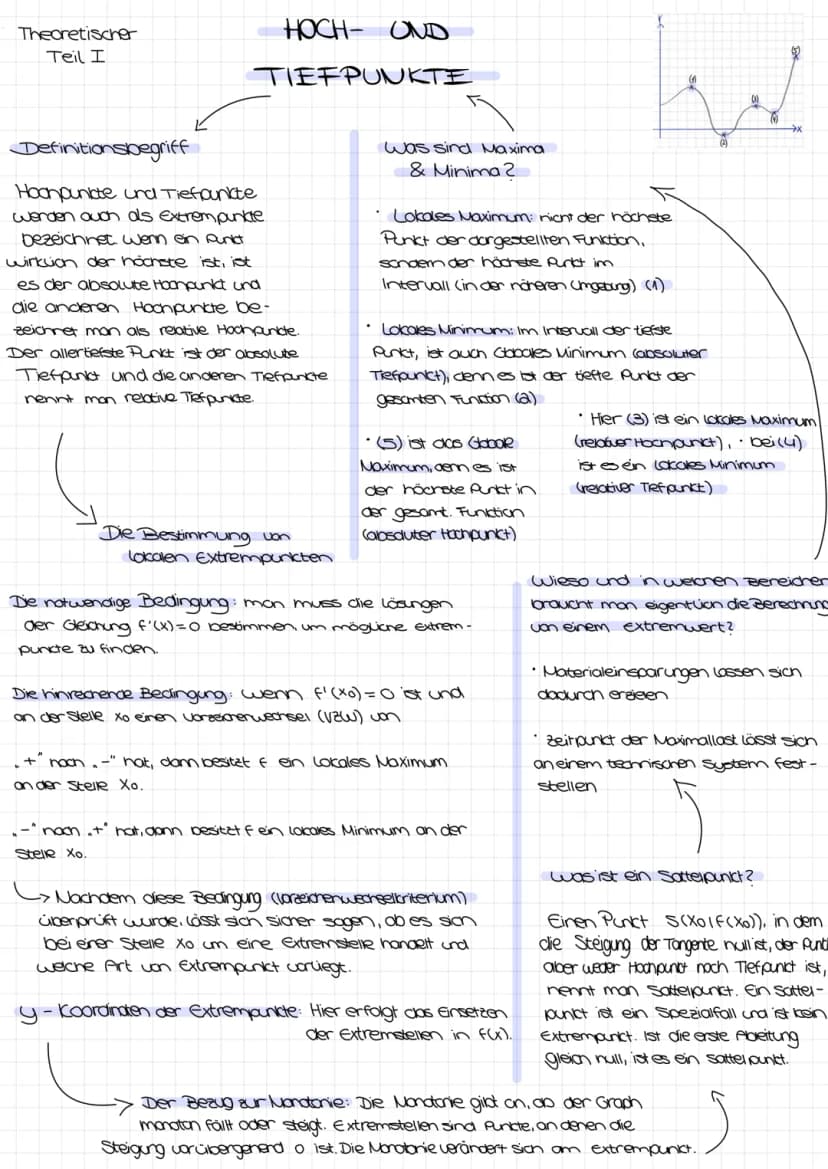 Theoretischer
Teil I
HOCH- UND
TIEFPUNKTE
y
(1)
(2)
(3)
(4)
(5)
x
Definitionsbegriff
Hochpunkte und Tiefpunkte
werden auch als Extrempunkte
bezeichnet. Wenn ein Punkt
wirklich der höchste ist, ist
es der absolute Hochpunkt und
die anderen Hochpunkte be-
zeichnet man als relative Hochpunkte.
Der allertiefste Punkt ist der absolute
Tiefpunkt und die anderen Tiefpunkte
nennt man relative Tiefpunkte.
Was sind Maxima
& Minima?
· Lokales Maximum: nicht der höchste
Punkt der dargestellten Funktion,
sondern der höchste Punkt im
Intervall (in der näheren Umgebung) (1)
· Lokales Minimum: Im Intervall der tiefste
Punkt, ist auch Globales Minimum (absoluter
Tiefpunkt), denn es ist der tiefte Punkt der
gesamten Funktion (2)
· Hier (3) ist ein Lokales Maximum
(relativer Hochpunkt), · bei (4)
ist es ein Lokales Minimum
(relativer Tiefpunkt)
· (5) ist das Globale
Maximum, denn es ist
der höchste Punkt in
der gesamt. Funktion
(absoluter Hochpunkt)
Die Bestimmung von
lokalen Extrempunkten
Die notwendige Bedingung: man muss die Lösungen
der Gleichung f'(x)=0 bestimmen, um mögliche Extrem-
punkte zu finden.
Die hinreichende Bedingung: Wenn f'(x₀)=0 ist und
an der Stelle x₀ einen Vorzeichenwechsel (VZW) von
„+" nach „-" hat, dann besitzt f ein Lokales Maximum
an der Stelle x₀.
„-" nach „+" hat, dann besitzt f ein lokales Minimum an der
Stelle x₀.
Nachdem diese Bedingung (Vorzeichenwechselkriterium)
überprüft wurde, lässt sich sicher sagen, ob es sich
bei einer Stelle x₀ um eine Extremstelle handelt und
welche Art von Extrempunkt vorliegt.
y-Koordinaten der Extrempunkte: Hier erfolgt das Einsetzen
der Extremstellen in f(x).
Der Bezug zur Monotonie: Die Monotonie gibt an, ob der Graph
monoton fällt oder steigt. Extremstellen sind Punkte, an denen die
Steigung vorübergehend 0 ist. Die Monotonie verändert sich am Extrempunkt.
Wieso und in welchen Bereichen
braucht man eigentlich die Berechnung
von einem Extremwert?
· Materialeinsparungen lassen sich
dadurch erzielen
· Zeitpunkt der Maximallast lässt sich
an einem technischen System fest-
stellen
Was ist ein Sattelpunkt?
Einen Punkt S(x₀|f(x₀)), in dem
die Steigung der Tangente null ist, der Punkt
aber weder Hochpunkt noch Tiefpunkt ist,
nennt man Sattelpunkt. Ein Sattel-
punkt ist ein Spezialfall und ist kein
Extrempunkt. Ist die erste Ableitung
gleich null, ist es ein Sattelpunkt.